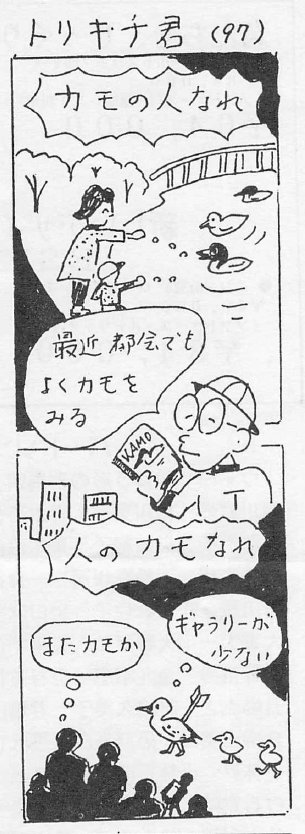 トリキチ君 (97)
カモの人なれ
最近都会でも
よくカモを
みる
KAMO
T
人のカモなれ
またカモか
ギャラリーが
少ない